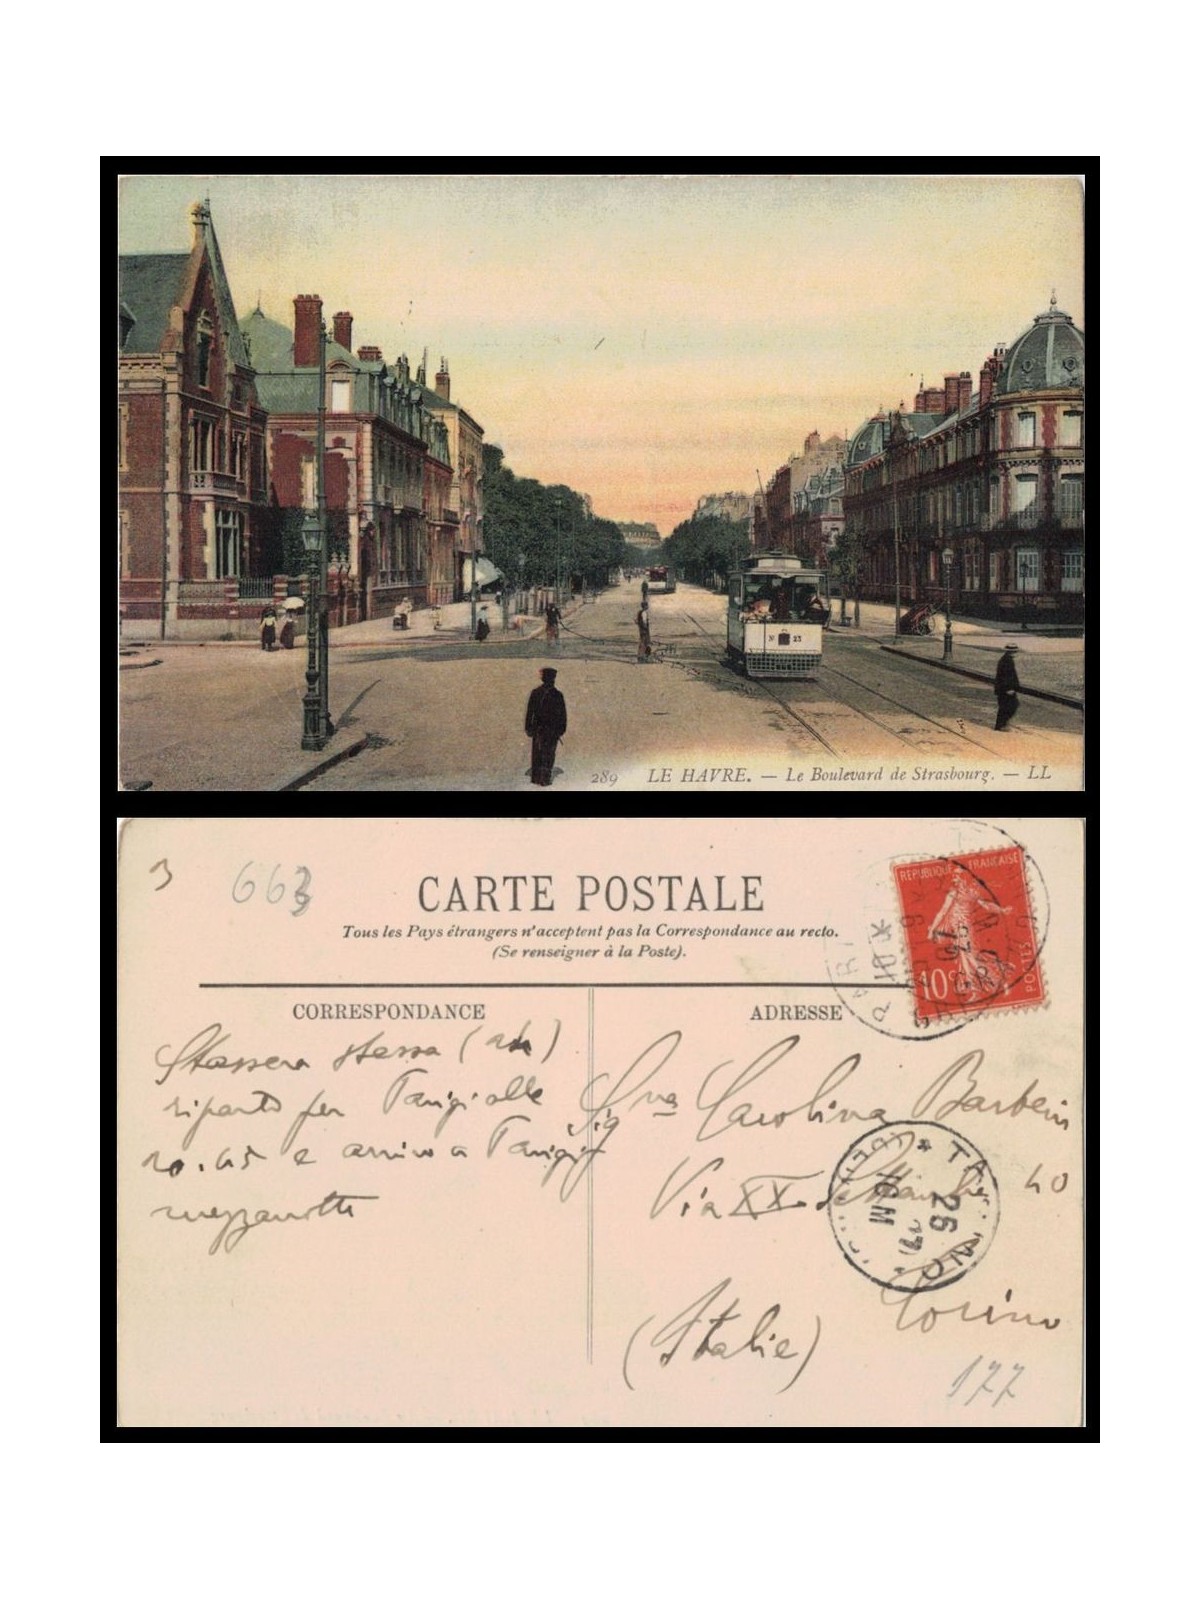 N° 23
289 LE HAVRE. — Le Boulevard de Strasbourg. — LL
3
663
CARTE POSTALE
Tous les Pays étrangers n'acceptent pas la Correspondance au recto.
(Se renseigner à la Poste).
REPUBLIQUE FRANÇAISE
10c
POSTES
PARIS
CORRESPONDANCE
ADRESSE
Stassera stessa
riparto per Parigi alle
10.45 e arrivo a Parigi
mezzanotte
Signa Carolina
Via XX Settembre 40
Torino
(Italie)
26
177